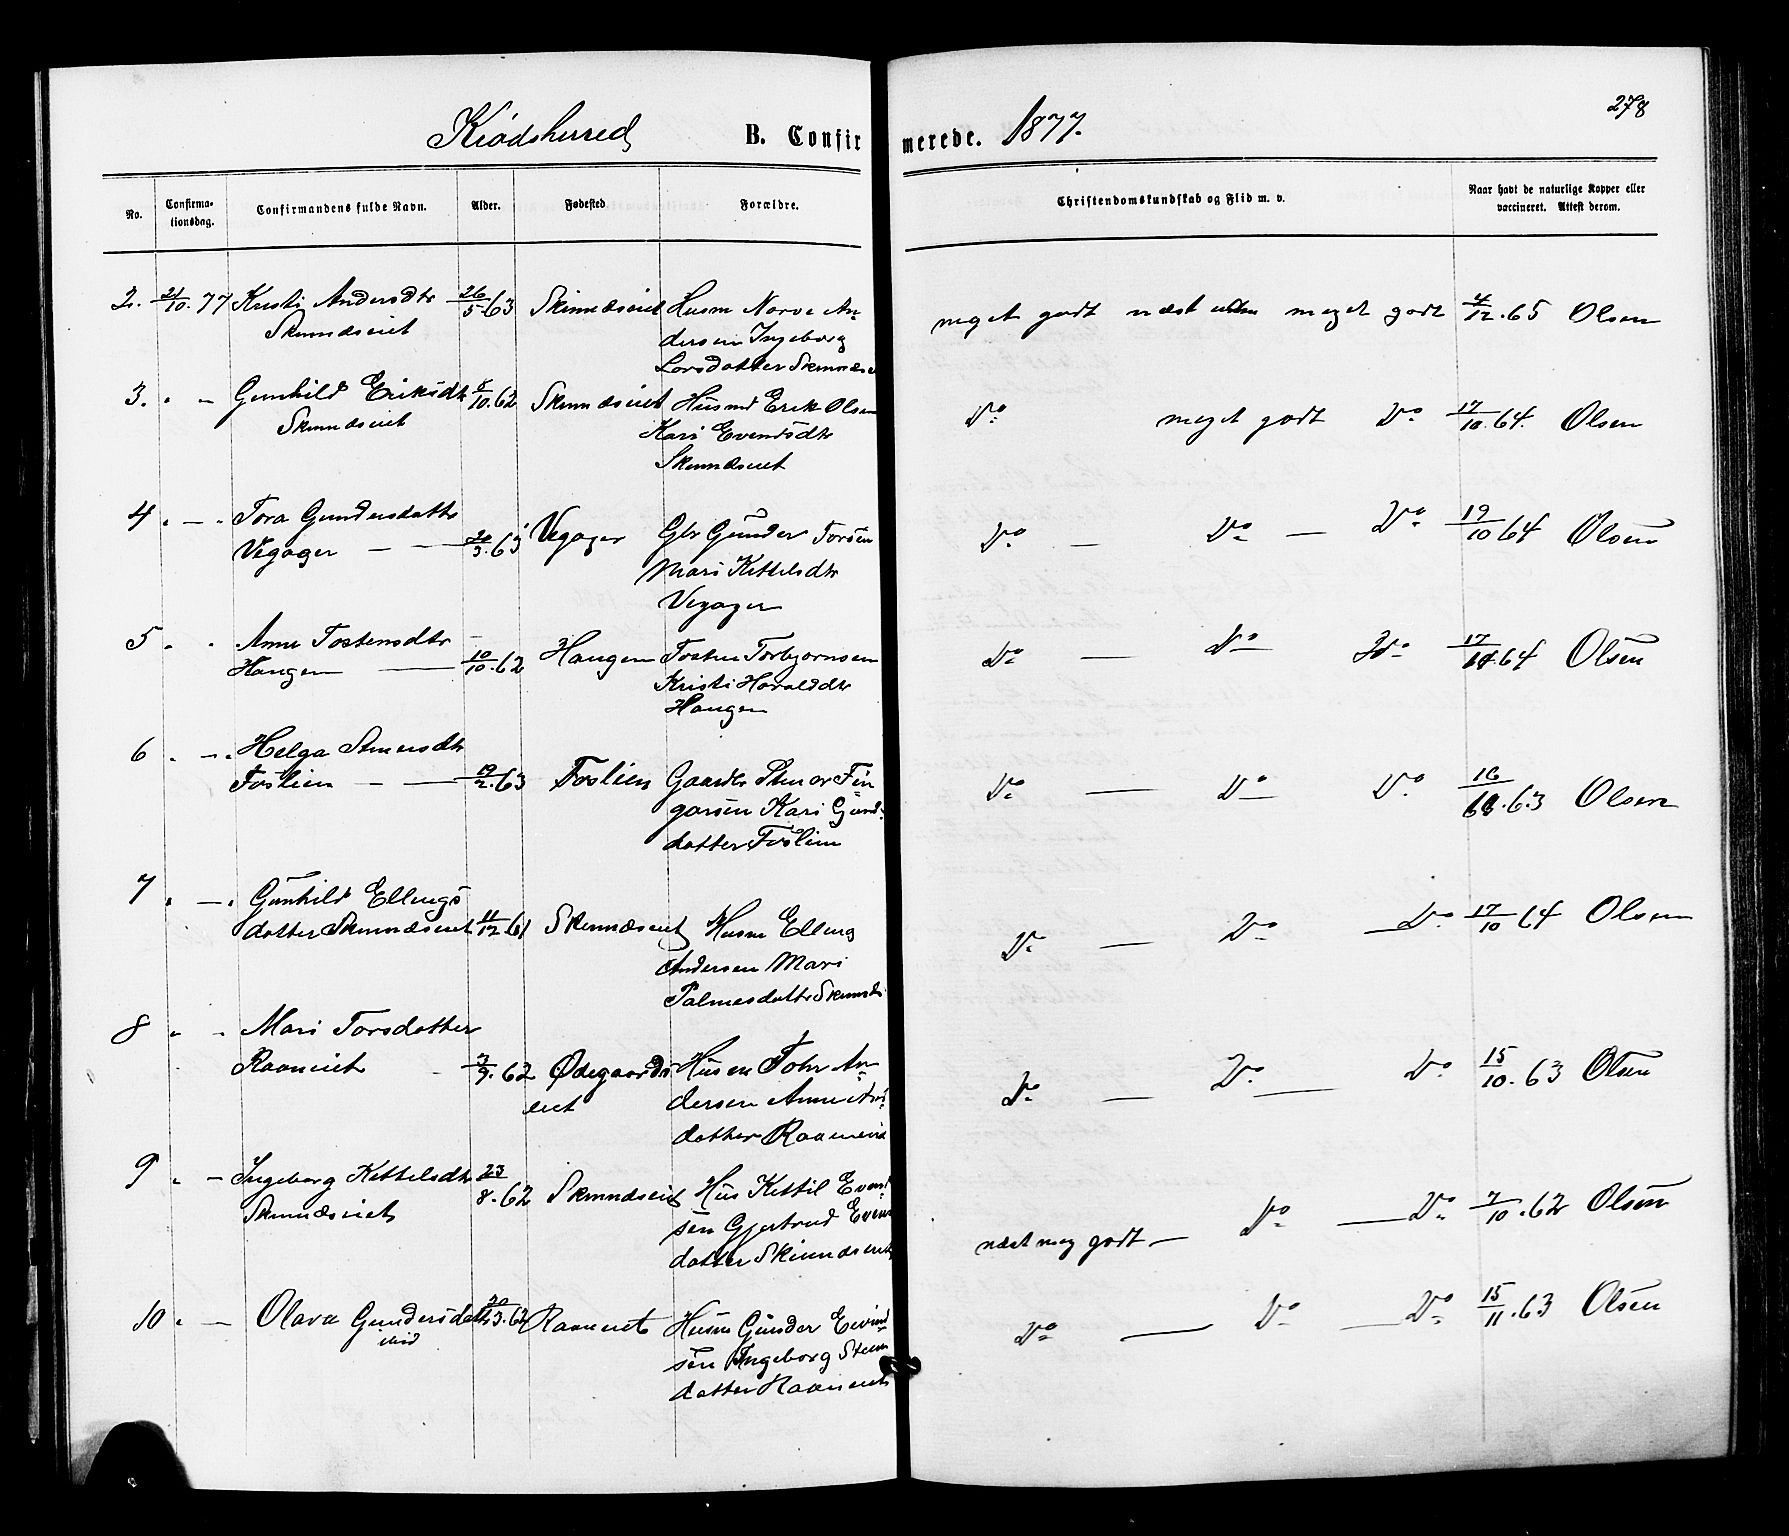 278
Krødsherred B. Confirmerede. 1877.
No. Confirmationsdag. Confirmandens fulde Navn. Alder. Fødested Forældre. Christendomskundskab og Flid m. v. Naar havt de naturlige Kopper eller vaccineret. Attest derom.
2. 21/10. 77 Kristi Andersdtr 26/5 63 Skinnæseiet Husm Narve An-
Skinnæseiet dersen Ingeborg
Larsdatter Skinnæse
meget godt næst uden meget godt 4/12. 65 Olsen
3. " – Gunhild Eriksdtr 8/10. 62 Skinnæseiet Husmd Erik Olsen
Skinnæseiet Kari Evensdtr
Skinnæseiet
Do meget godt Do 17/10. 64. Olsen
4 " – " Tora Gundersdattr
Vegager – – 20/3. 63 Vegager Gbr Gunder Torsen
Mari Kittelsdtr
Vegager
Do – Do – Do 19/10 64 Olsen
5 " " Anne Tostensdtr
Haugen – 10/10. 62 Haugen Tosten Torbjørnsen
Kristi Haralddtr
Haugen
Do – Do Do 17/10. 64 Olsen
6 " – " Helga Stenersdtr
Foslien – – 19/2. 63 Foslien Gaardbr Stener Fin-
garsen Kari Gund-
datter Foslien
Do – Do Do 16/10. 63 Olsen
7 " – " Gunhild Ellings
datter Skinnæseiet 11/12 61 Skinnæseiet Husm Elling
Andersen Mari
Palmesdattr Skinnæs
Do – Do – Do 17/10 64 Olsen
8 " " Mari Torsdatter
Raaneiet 3/9. 62 Ødegaards Husm Tohr An-
eiet dersen Anne
datter Raaneie
Do – Do – Do 15/10. 63 Olsen
9 " – Ingeborg Kittelsdtr 23/8. 62 Skinnæseiet Hus Kittil Evend
Skinnæseiet sen Gjertrud Evens
datter Skinnæseiet
næst meg godt – Do – Do 7/10. 62 Olsen
10 " – Olava Gundersdattr 20/3. 62 Raaneiet Husm Gunder Eivind
ibid sen Ingeborg Steen
datter Raaneiet
Do – Do – Do 15/11. 63 Olsen